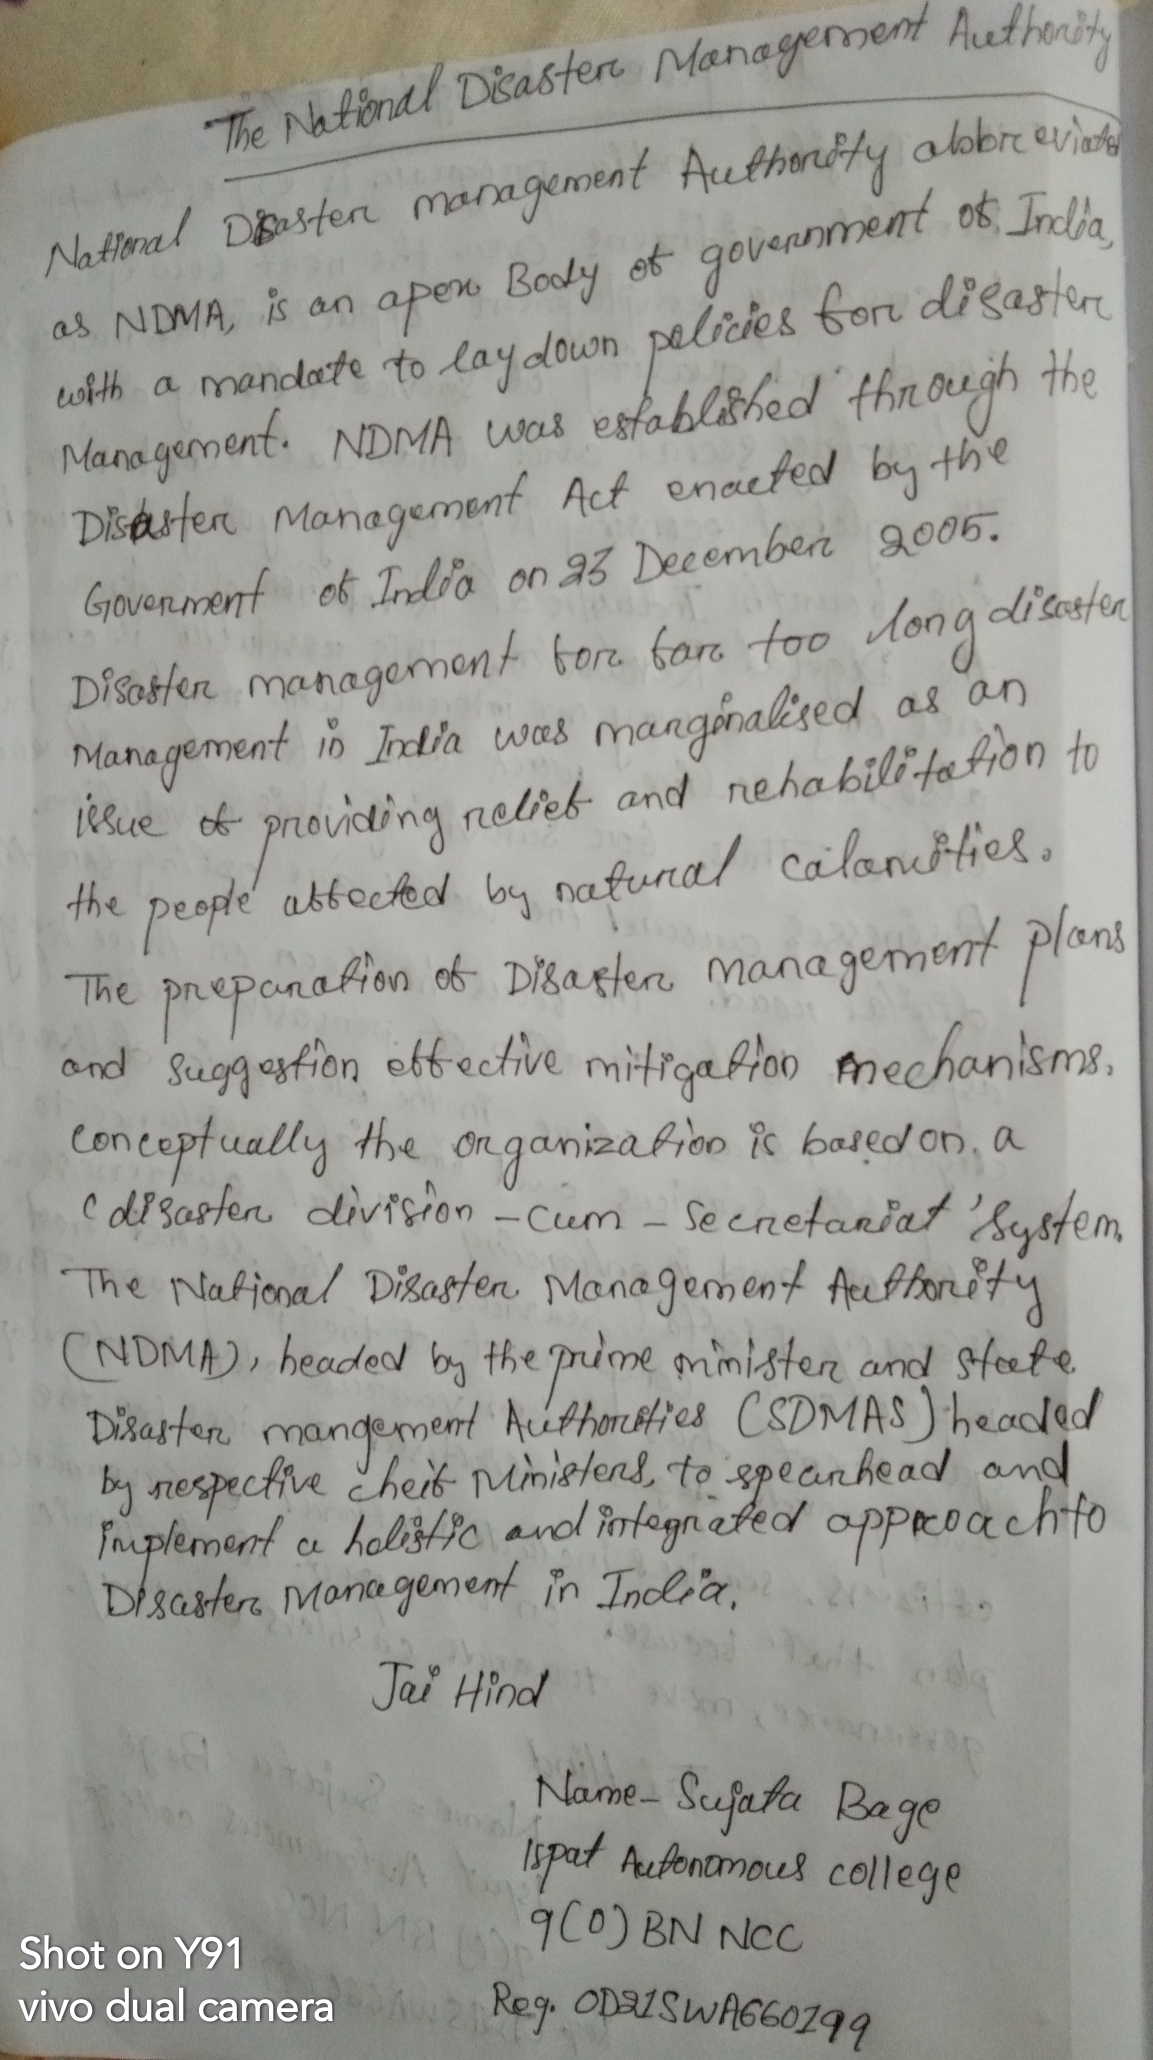 The National Disaster Management Authority
National Disaster management Authority abbreviated
as NDMA, is an apex Body of government of India,
with a mandate to lay down policies for disaster
Management. NDMA was established through the
Disaster Management Act enacted by the
Goverment of India on 23 December 2005.
Disaster management for far too long disaster
Management in India was marginalised as an
issue of providing relief and rehabilitation to
the people affected by natural calamities.
The preparation of Disaster management plans
and suggestion effective mitigation mechanisms.
conceptually the organization is based on a
'disaster division - cum - secretariat' system.
The National Disaster Management Authority
(NDMA), headed by the prime minister and state
Disaster mangement Authorities (SDMAS) headed
by respective cheif Ministers, to spearhead and
implement a holistic and integrated approach to
Disaster Management in India.
Jai Hind
Name - Sujata Bage
Ispat Autonomous college
9(O) BN NCC
Reg. OD21SWA660199
Shot on Y91
vivo dual camera